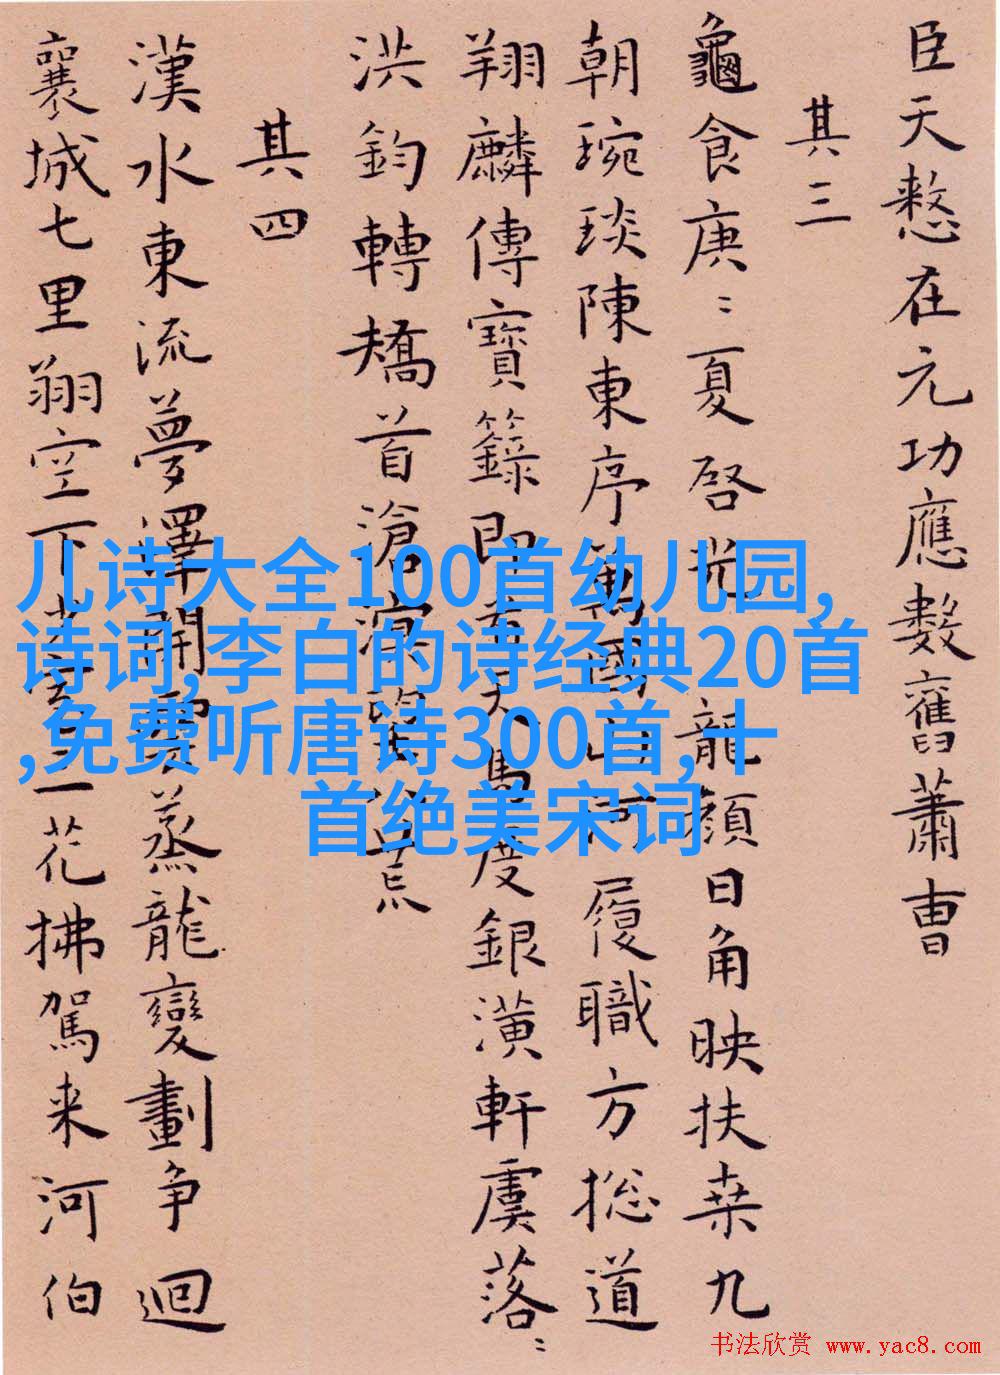 臣天憗在元功應數舊蕭曹
其三
龜食庚〻夏啓光龍顔日角映扶桑九
朝琬琰陳東序萬國山河履職方揔道
翔麟傳寶籙即看天馬度銀潢軒虞落〻
洪鈞轉矯首滄溟望八荒
其四
漢水東流夢澤開雲蒸龍變劃争迴
襄城七里翔空下芝蓋三花拂駕来河伯
儿诗大全100首幼儿园,
诗词,李白的诗经典20首
,免费听唐诗300首,十
首绝美宋词
书法欣赏 www.yac8.com